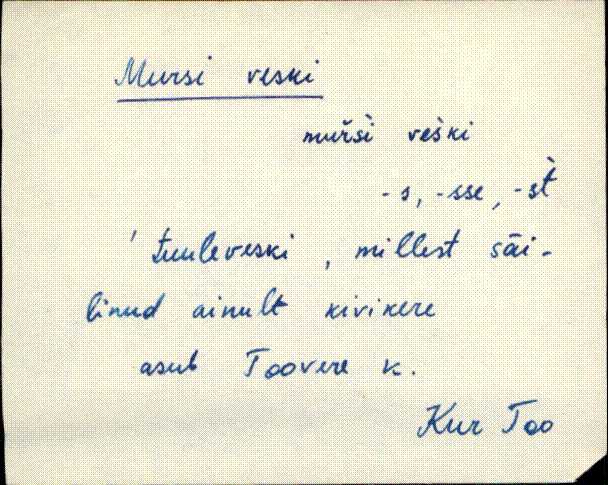 Mursi veski
muřsi veski
-s, -sse, -st̀
' tuuleveski, millest säi-
linud ainult kivikere
asub Toovere k.
Kur Too